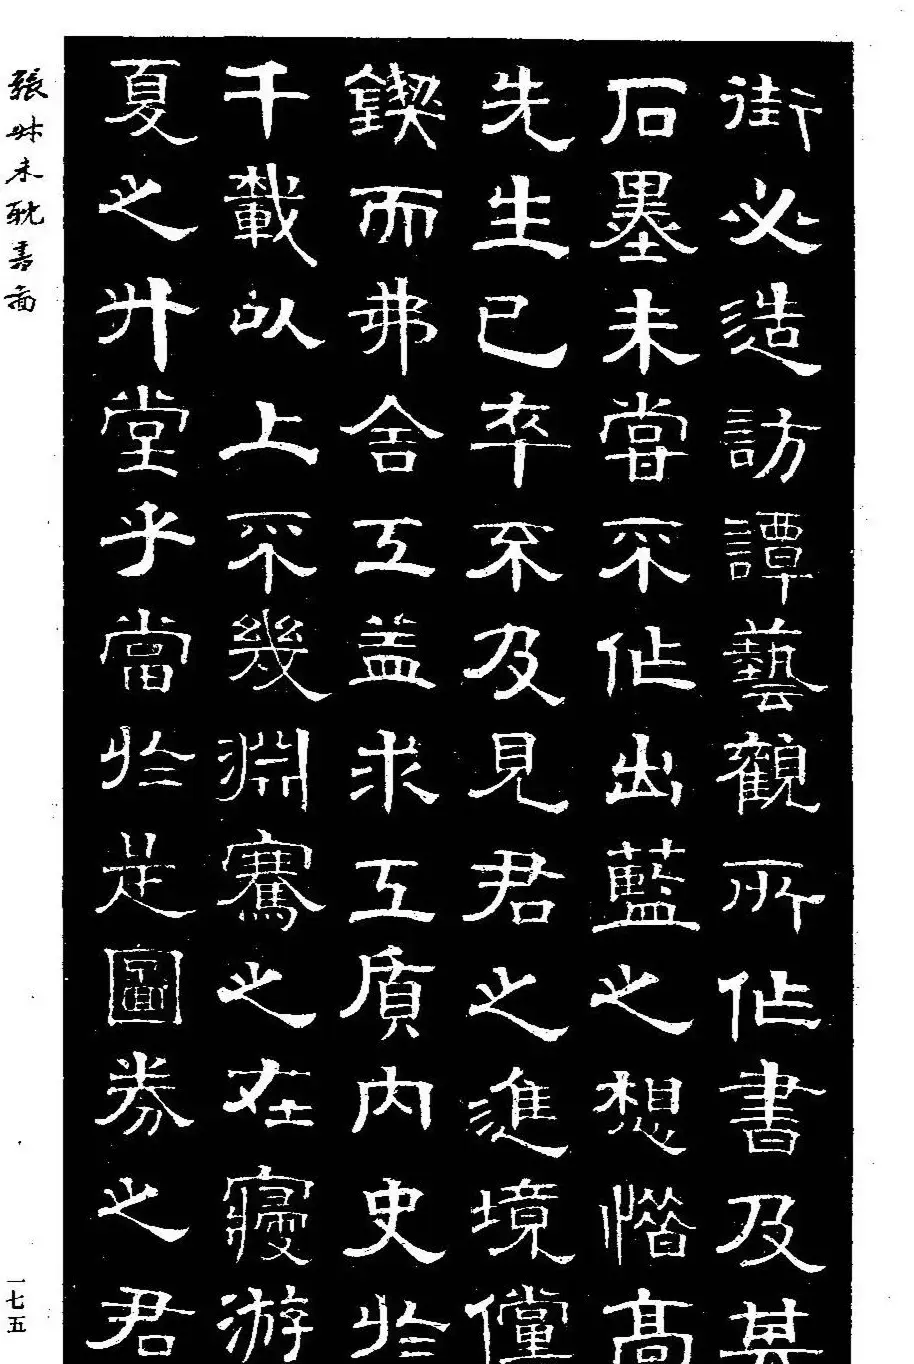 街必造訪譚藝觀所作書及其
石墨未嘗不作出藍之想惜高
先生已卒不及見君之進境儻
鍥而弗舍工益求工質內史於
千載以上不幾淵騫之在寢游
夏之升堂乎當於是圖券之君
張叔未耽書圖
一七五